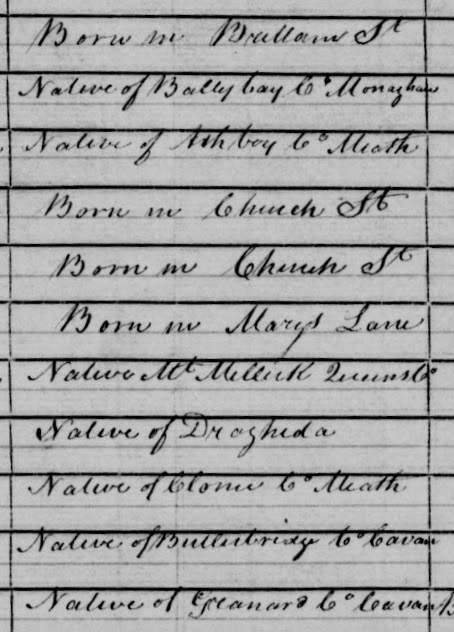 Born in Brittain St
Native of Ballybay Co Monaghan
Native of Athboy Co Meath
Born in Church St
Born in Church St
Born in Marys Lane
Native Mt Mellick Queens Co
Native of Drogheda
Native of Co Meath
Native of Butlersbridge Co Cavan
Native of Granard Co Cavan